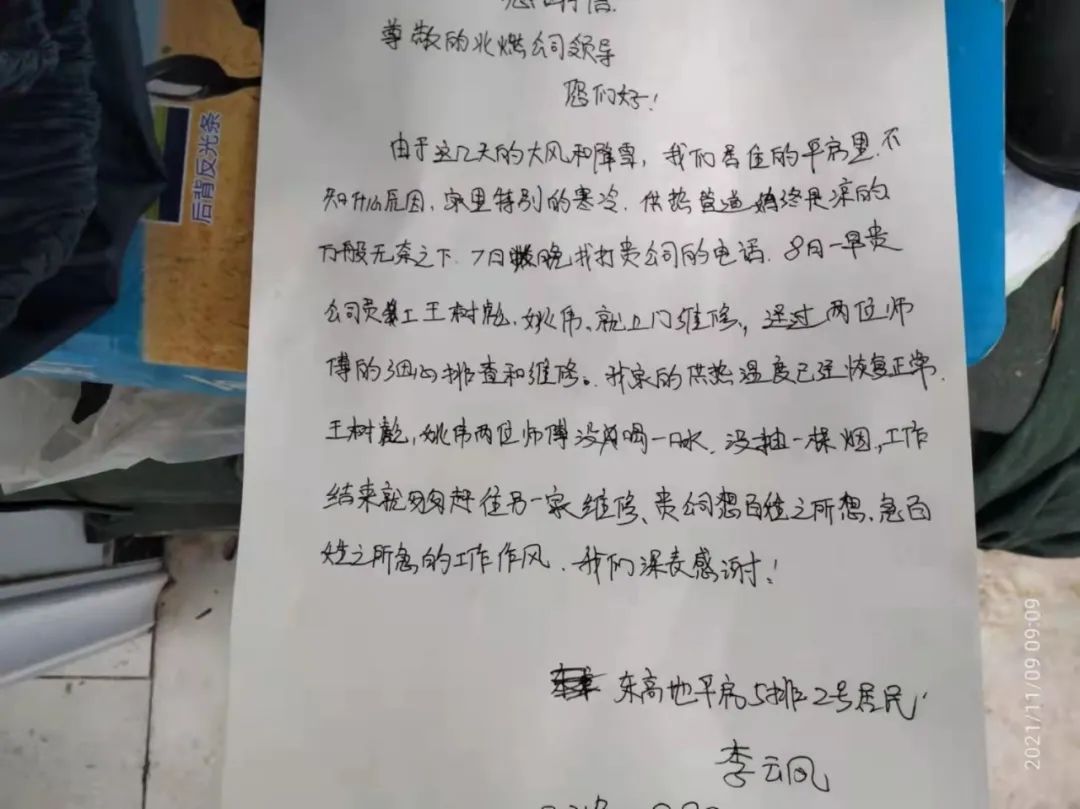 感谢信
尊敬的北燃公司领导
您们好！
由于这几天的大风和降雪，我们居住的平房里.不
知什么原因，家里特别的寒冷.供热管道始终是凉的
万般无奈之下.7日晚我打贵公司的电话.8日一早贵
公司员工王树乾、姚伟、就上门维修，通过两位师
傅的细心排查和维修。我家的供热温度已经恢复正常.
王树乾，姚伟两位师傅没有喝一口水.没抽一根烟，工作
结束就匆匆赶往另一家维修、贵公司想百姓之所想、急百
姓之所急的工作作风.我们深表感谢！
东高地平房5排2号居民
李云凤
后背反光条
2021/11/09 09:09